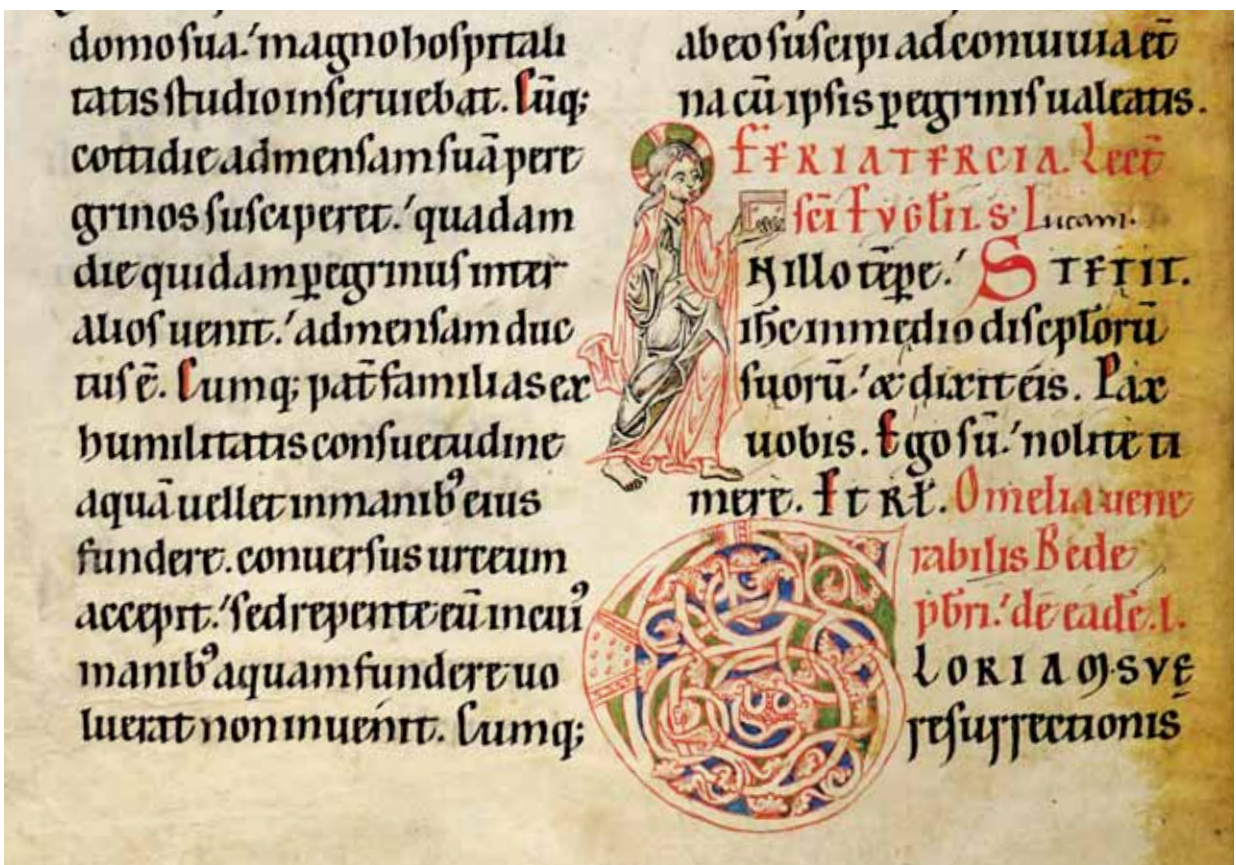 domo sua.' magno hospitali
tatis studio inserviebat. Cūq;
cottidie ad mensam suā pere
grinos susciperet.' quadam
die quidam p̱egrinus inter
alios uenit.' ad mensam duc
tus ē. Cumq; pat̄familias ex
humilitatis consuetudine
aquā uellet in manibꝰ eius
fundere. conuersus urceum
accepit.' sed repente eū in cuiꝰ
manibꝰ aquam fundere uo
luerat non inuenit. Cumq;
ab eo suscipi ad conuiuia et̄
na cū ipsis p̱egrinis ualeatis.
FERIA TERCIA. Lect̄
sc̄i evḡlii s. Lucam.
N illo tēp̱e.' STETIT.
ih̄c in medio disciplōrū
suorū.' & dixit eis. Pax
uobis. Ego sū.' nolite ti
mere. Et rł. Omelia uene
rabilis Bede
p̄bri.' de eadē. l.
LORIAM SVĘ
resurrectionis